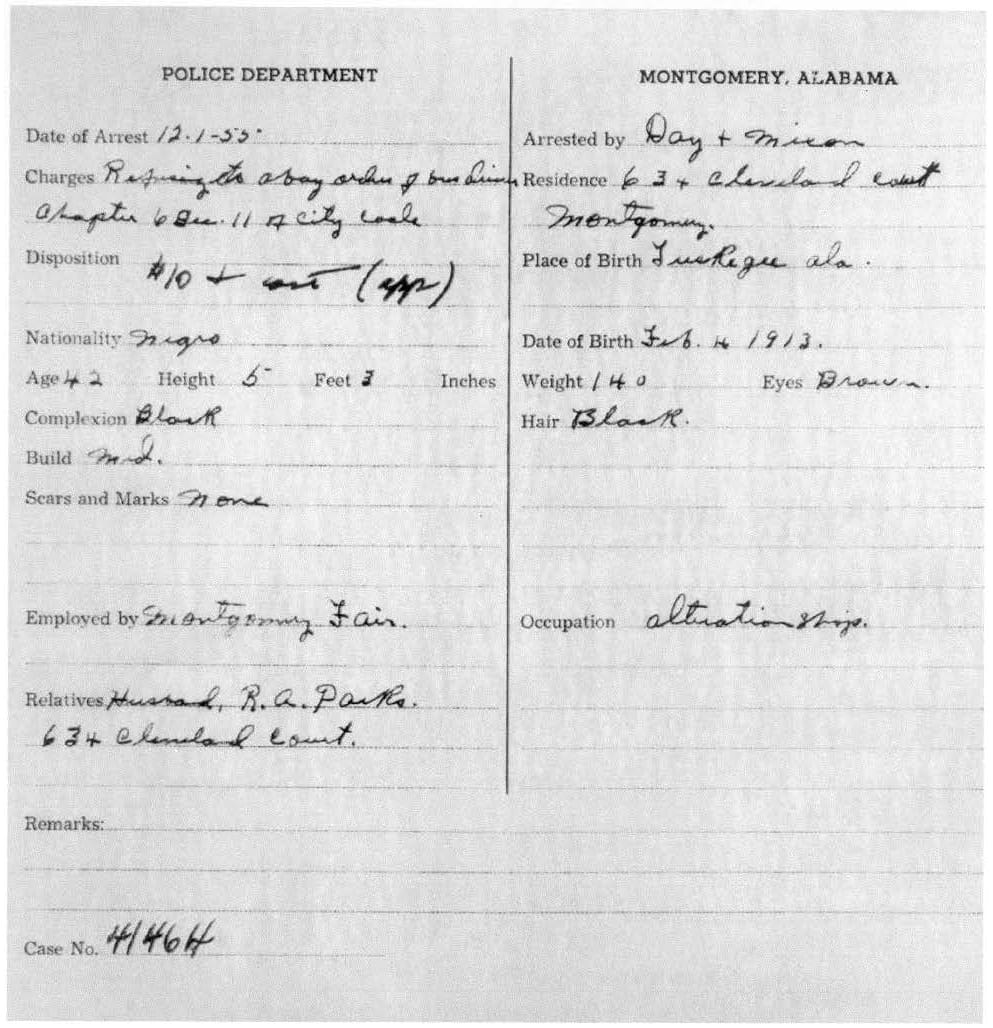 POLICE DEPARTMENT
Date of Arrest 12-1-55
Charges Refusing to obay order of bus driver
Chapter 6 Sec. 11 of City Code
Disposition $10 + cost (app)
Nationality Negro
Age 42 Height 5 Feet 3 Inches
Complexion Black
Build Med.
Scars and Marks None
Employed by Montgomery Fair.
Relatives Husband, R.A. Parks.
634 Cleveland Court.
Remarks:
Case No. 41464
MONTGOMERY, ALABAMA
Arrested by Day + Mixon
Residence 634 Cleveland Court
Montgomery.
Place of Birth Tuskegee Ala.
Date of Birth Feb. 4 1913.
Weight 140 Eyes Brown.
Hair Black.
Occupation alteration Shop.